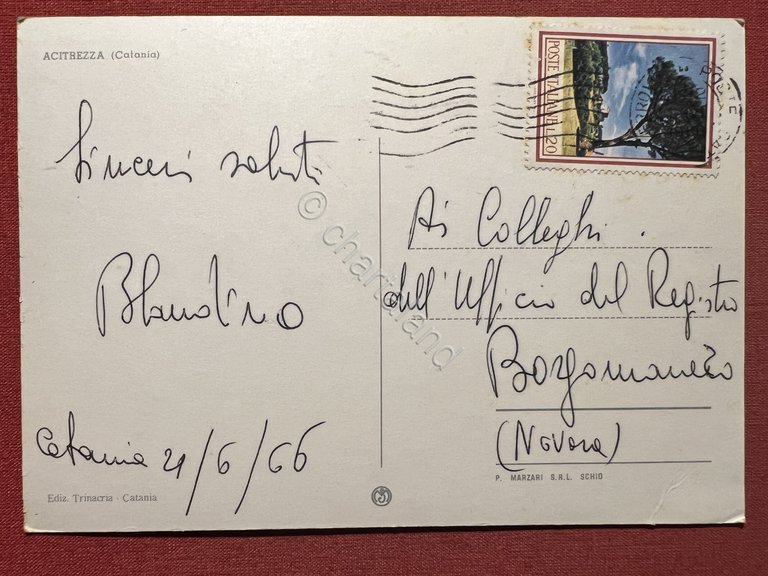 ACITREZZA (Catania)
POSTE ITALIANE L. 20
Sinceri saluti
Blandino
Catania 21/6/66
Ai Colleghi.
dell'Ufficio del Registro
Borgomanero
(Novara)
P. MARZARI S.R.L. SCHIO
Ediz. Trinacria - Catania
© charta.land